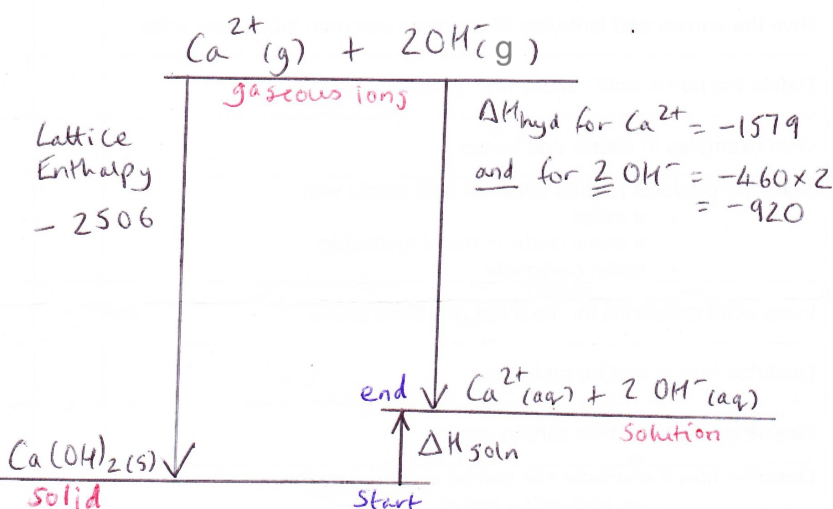 Ca²⁺(g) + 2OH⁻(g)
gaseous ions
Lattice
Enthalpy
- 2506
ΔHhyd for Ca²⁺ = -1579
and for 2 OH⁻ = -460×2
= -920
end
Ca²⁺(aq) + 2 OH⁻(aq)
Solution
ΔH soln
Ca(OH)₂(s)
Solid
Start